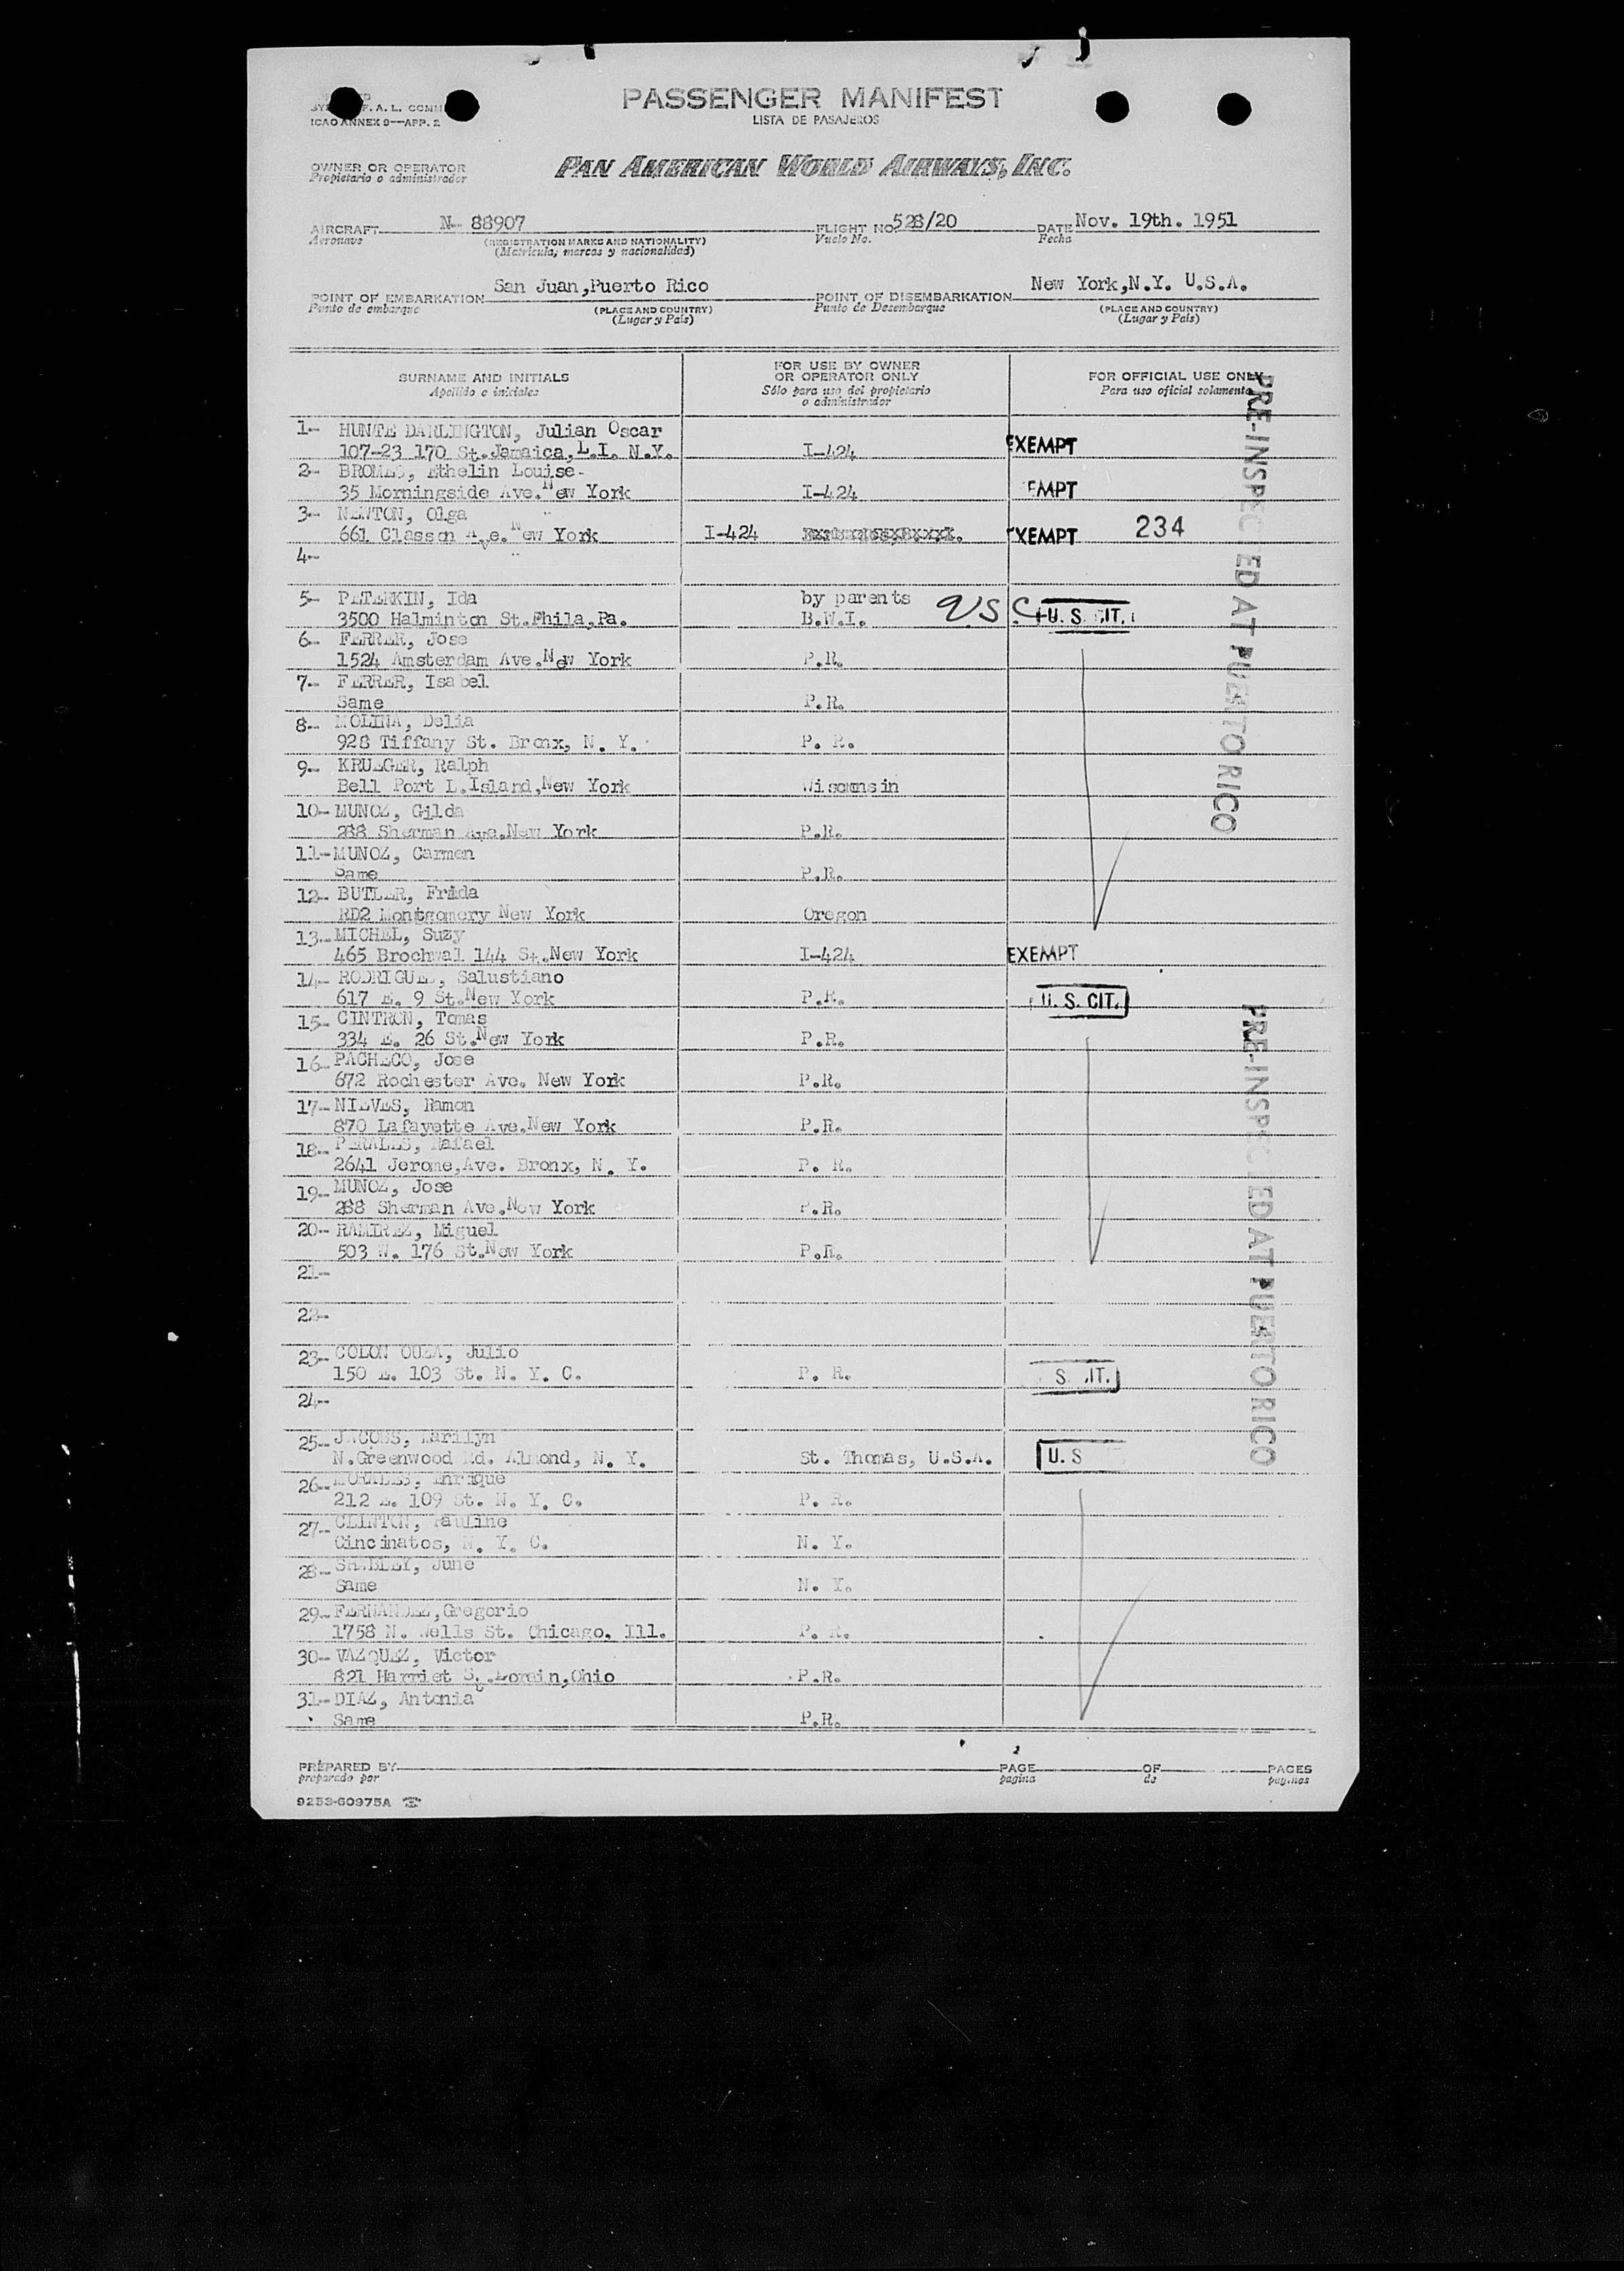 PASSENGER MANIFEST
LISTA DE PASAJEROS
F. A. L. COMM
ICAO ANNEX 9—APP. 2
OWNER OR OPERATOR
Propietario o administrador
PAN AMERICAN WORLD AIRWAYS, INC.
AIRCRAFT N- 88907 FLIGHT NO. 528/20 DATE Nov. 19th. 1951
Aeronave (REGISTRATION MARKS AND NATIONALITY) Vuelo No. Fecha
(Matricula, marcas y nacionalidad)
POINT OF EMBARKATION San Juan,Puerto Rico POINT OF DISEMBARKATION New York,N.Y. U.S.A.
Punto de embarque (PLACE AND COUNTRY) Punto de Desembarque (PLACE AND COUNTRY)
(Lugar y País) (Lugar y País)
SURNAME AND INITIALS
Apellido e iniciales
FOR USE BY OWNER
OR OPERATOR ONLY
Sólo para uso del propietario
o administrador
FOR OFFICIAL USE ONLY
Para uso oficial solamente
1- HUNTE DARLINGTON, Julian Oscar
107-23 170 St.Jamaica,L.I. N.Y. I-424 EXEMPT
2- Ethelin Louise-
35 Morningside Ave.New York I-424 EMPT
3- NEWTON, Olga
661 Classon Ave.New York I-424 EXEMPT 234
4-
5- PETERKIN, Ida by parents
3500 Halminton St.Phila,Pa. B.W.I. U.S.C. U. S. CIT.
6- FERRER, Jose
1524 Amsterdam Ave.New York P.R.
7- FERRER, Isabel
Same P.R.
8- MOLINA, Delia
928 Tiffany St. Bronx, N. Y. P. R.
9- KRUEGER, Ralph
Bell Port L.Island,New York Wisconsin
10- MUNOZ, Gilda
288 Sherman Ave.New York P.R.
11- MUNOZ, Carmen
Same P.R.
12- BUTLER, Frida
RD2 Montgomery New York Oregon
13- MICHEL, Suzy
465 Brochwal 144 St.New York I-424 EXEMPT
14- RODRIGUEZ, Salustiano
617 E. 9 St.New York P.R. U. S. CIT.
15- CINTRON, Tomas
334 E. 26 St.New York P.R.
16- PACHECO, Jose
672 Rochester Ave. New York P.R.
17- NIEVES, Ramon
870 Lafayette Ave.New York P.R.
18- PERALES, Rafael
2641 Jerome,Ave. Bronx, N. Y. P. R.
19- MUNOZ, Jose
288 Sherman Ave.New York P.R.
20- RAMIREZ, Miguel
503 W. 176 St.New York P.R.
21-
22-
23- COLON Julio
150 E. 103 St. N. Y. C. P. R. S. IT.
24-
25- JACOBS, Marilyn
N.Greenwood Rd. Almond, N. Y. St. Thomas, U.S.A. U. S
26- MORALES, Enrique
212 E. 109 St. N. Y. C. P. R.
27- CLINTON, Pauline
Cincinatos, N. Y. C. N. Y.
28- June
Same N. Y.
29- FERNANDEZ,Gregorio
1758 N. Wells St. Chicago. Ill. P. R.
30- VAZQUEZ, Victor
821 Harriet St.Lorain,Ohio P.R.
31- DIAZ, Antonia
Same P.R.
PRE-INSPECTED AT PUERTO RICO
PRE-INSPECTED AT PUERTO RICO
PREPARED BY PAGE 2 OF PAGES
preparado por pagina de paginas
9253-60975A